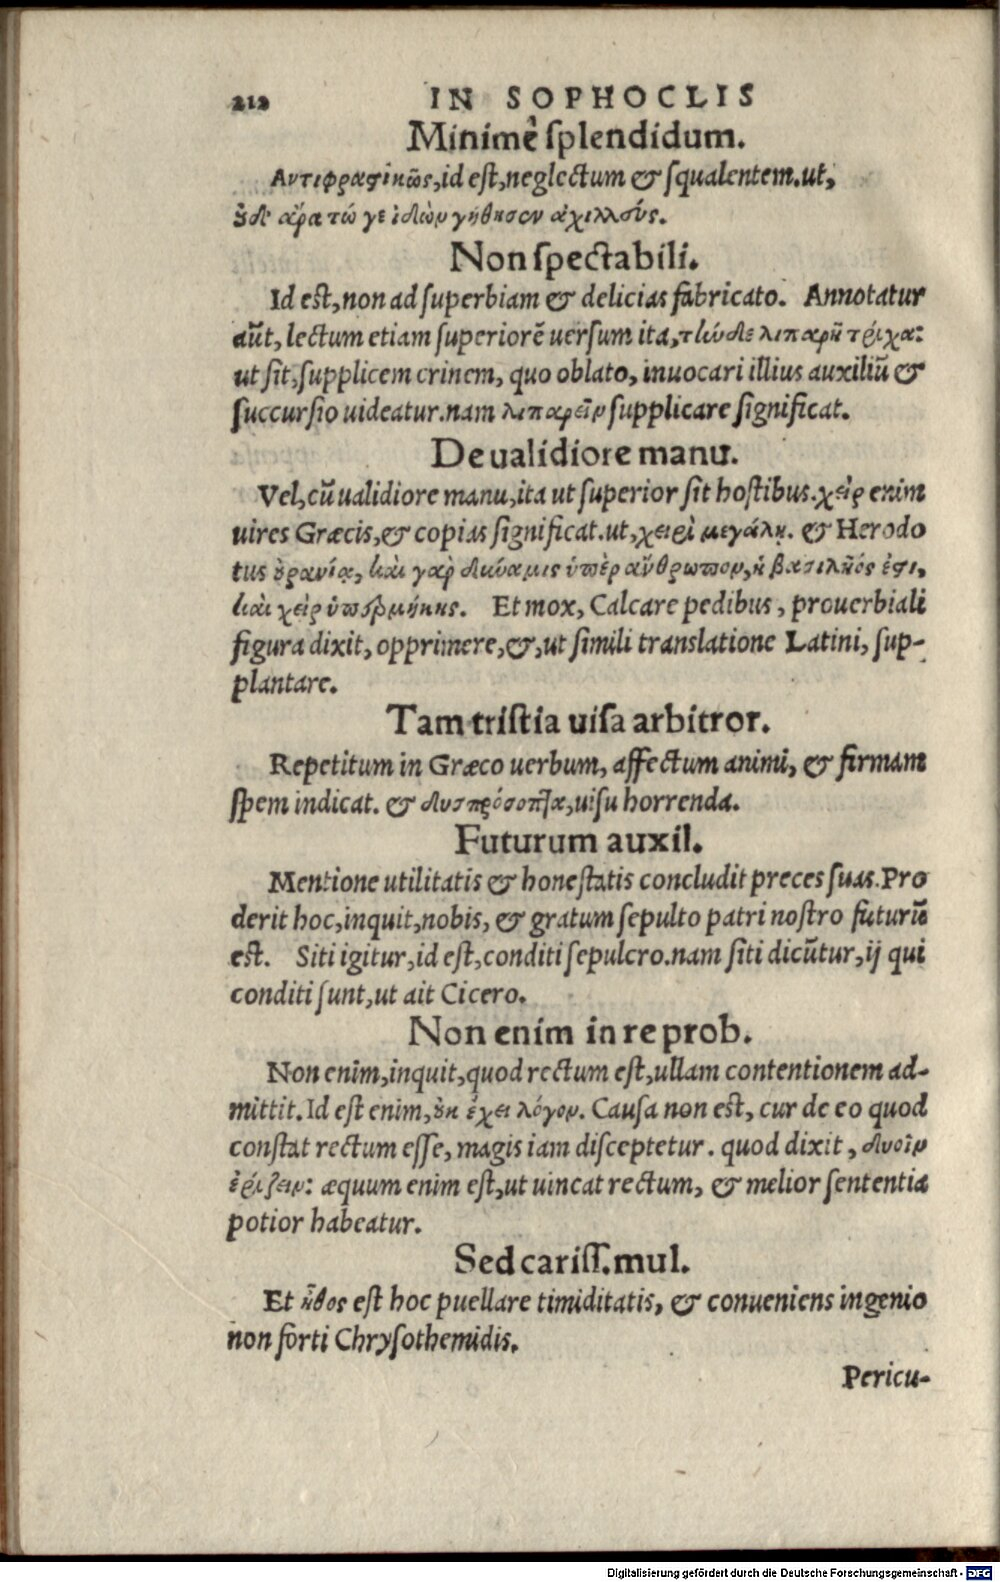 212 IN SOPHOCLIS
Minimè splendidum.
Αντιφραϛικῶς, id est, neglectum & squalentem. ut,
ȣ̓δ' ἄρα τώ γε ἰδὼν γήθησεν ἀχιλλεύς.
Non spectabili.
Id est, non ad superbiam & delicias fabricato. Annotatur
aūt, lectum etiam superiorē uersum ita, τὼδε λιπαρῆ τρίχα:
ut sit, supplicem crinem, quo oblato, inuocari illius auxiliū &
succursio uideatur. nam λιπαρεῖν supplicare significat.
De ualidiore manu.
Vel, cū ualidiore manu, ita ut superior sit hostibus. χεὶρ enim
uires Græcis, & copias significat. ut, χειρὶ μεγάλῃ. & Herodo
tus ȣ̓ρανίᾳ, καὶ γὰρ δύναμις ὑπὲρ ἄνθρωπον, ἡ βασιλῆός ἐϛι,
καὶ χεὶρ ὑπερμήκης. Et mox, Calcare pedibus, prouerbiali
figura dixit, opprimere, &, ut simili translatione Latini, sup-
plantare.
Tam tristia uisa arbitror.
Repetitum in Græco uerbum, affectum animi, & firmam
spem indicat. & δυσπρόσοπτα, uisu horrenda.
Futurum auxil.
Mentione utilitatis & honestatis concludit preces suas. Pro
derit hoc, inquit, nobis, & gratum sepulto patri nostro futurū
est. Siti igitur, id est, conditi sepulcro. nam siti dicūtur, ij qui
conditi sunt, ut ait Cicero.
Non enim in re prob.
Non enim, inquit, quod rectum est, ullam contentionem ad-
mittit. Id est enim, ȣ̓κ ἔχει λόγον. Causa non est, cur de eo quod
constat rectum esse, magis iam disceptetur. quod dixit, δυοῖν
ἐρίζειν: æquum enim est, ut uincat rectum, & melior sententia
potior habeatur.
Sed cariss. mul.
Et ἦθος est hoc puellare timiditatis, & conueniens ingenio
non forti Chrysothemidis.
Pericu-
Digitalisierung gefördert durch die Deutsche Forschungsgemeinschaft - DFG